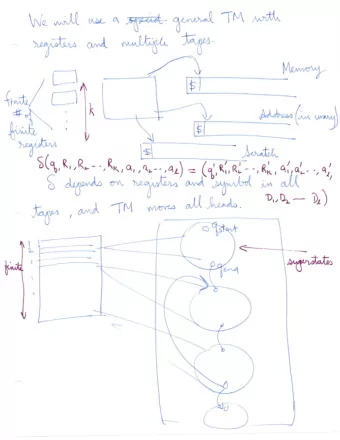 We will use a general TM with
registers and multiple tapes.
Memory
finite
# of
finite
registers
k
$
Address (in unary)
$
Scratch
$
δ(q, R₁, R₂ - - -, Rₖ, a₁, a₂ - - -, aₗ) = (q', R₁', R₂' - - -, Rₖ', a₁', a₂' - - -, aₗ',
D₁, D₂ --- Dₗ)
δ depends on registers and symbol in all
tapes, and TM moves all heads.
q start
q end
finite
superstates